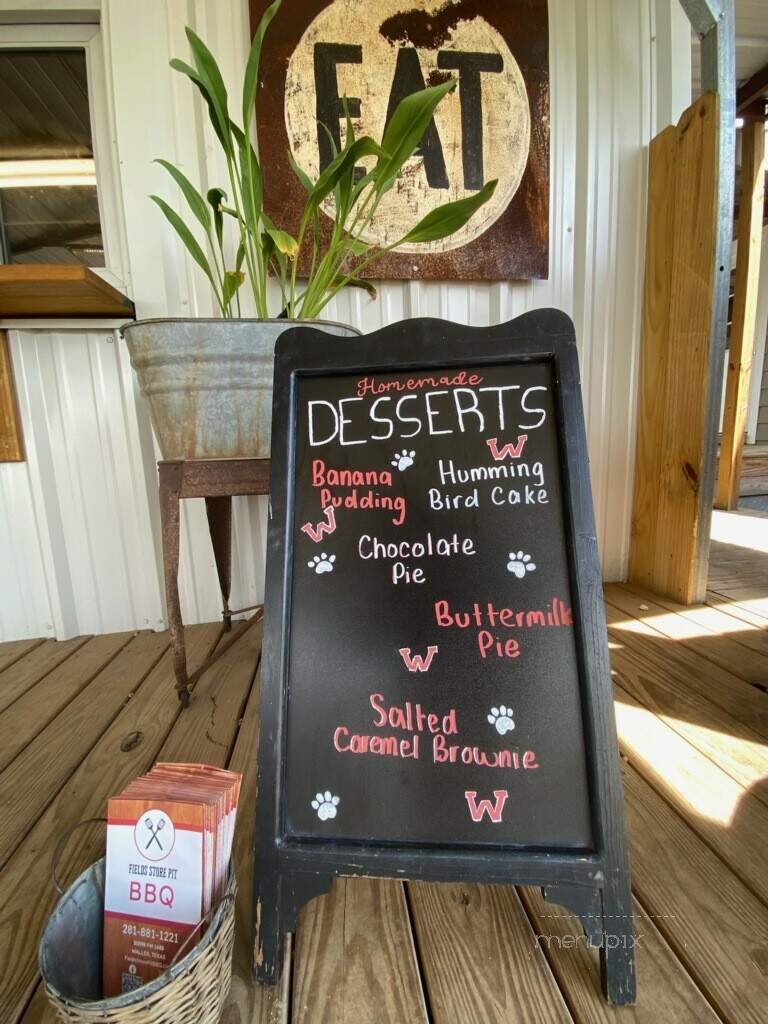 EAT
Homemade
DESSERTS
W
Banana
Pudding
Humming
Bird Cake
W
Chocolate
Pie
Buttermilk
Pie
W
Salted
Caremel Brownie
W
FIELDS STORE PIT
BBQ
281-881-1221
WALLER, TEXAS
menupix